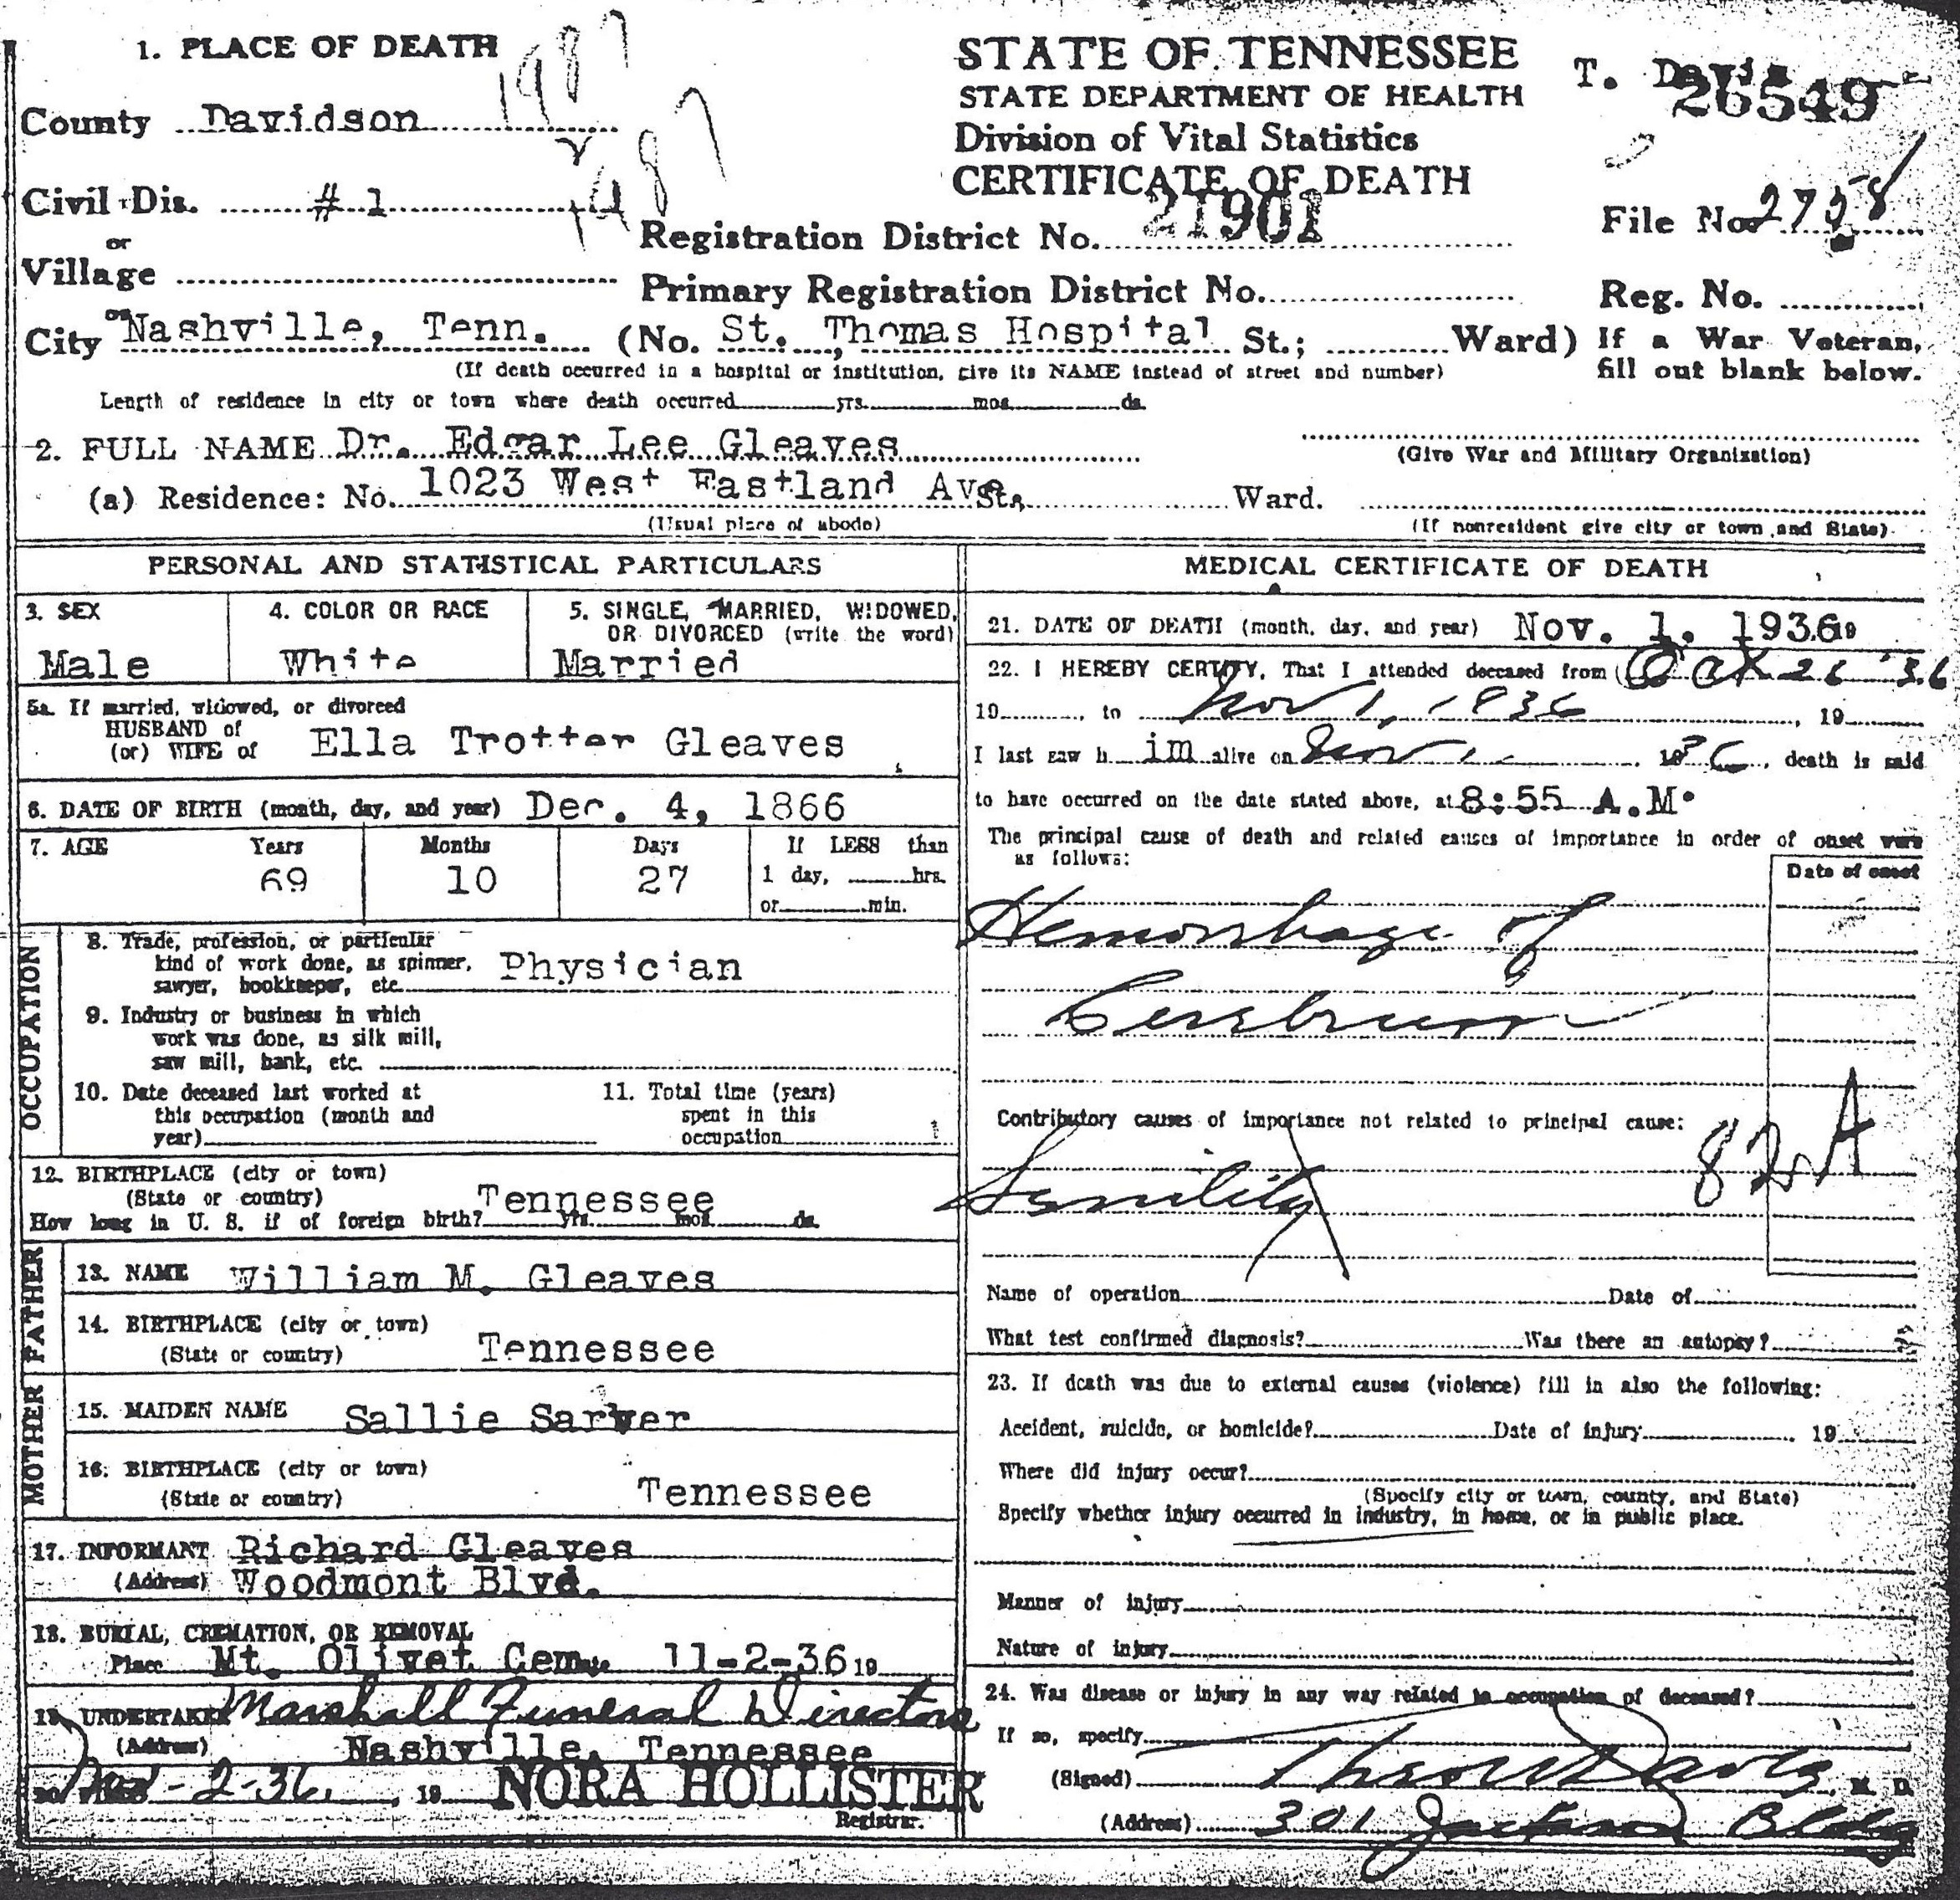 1. PLACE OF DEATH
County Davidson
Civil Dis. # 1
or
Village
or
City Nashville, Tenn. (No. St. Thomas Hospital St.; Ward)
(If death occurred in a hospital or institution, give its NAME instead of street and number)
Length of residence in city or town where death occurred yrs. mos. ds.
STATE OF TENNESSEE
STATE DEPARTMENT OF HEALTH
Division of Vital Statistics
CERTIFICATE OF DEATH
21901
Registration District No.
Primary Registration District No.
T. Davis
26549
File No. 2758
Reg. No.
If a War Veteran,
fill out blank below.
2. FULL NAME Dr. Edgar Lee Gleaves
(Give War and Military Organization)
(a) Residence: No. 1023 West Eastland Ave. St., Ward.
(Usual place of abode)
(If nonresident give city or town and State)
PERSONAL AND STATISTICAL PARTICULARS
3. SEX
Male
4. COLOR OR RACE
White
5. SINGLE, MARRIED, WIDOWED,
OR DIVORCED (write the word)
Married
5a. If married, widowed, or divorced
HUSBAND of
(or) WIFE of Ella Trotter Gleaves
6. DATE OF BIRTH (month, day, and year) Dec. 4, 1866
7. AGE Years Months Days If LESS than
69 10 27 1 day, hrs.
or min.
OCCUPATION
8. Trade, profession, or particular
kind of work done, as spinner,
sawyer, bookkeeper, etc. Physician
9. Industry or business in which
work was done, as silk mill,
saw mill, bank, etc.
10. Date deceased last worked at
this occupation (month and
year)
11. Total time (years)
spent in this
occupation
12. BIRTHPLACE (city or town)
(State or country) Tennessee
How long in U. S. if of foreign birth? yrs. mos. ds.
FATHER
13. NAME William M. Gleaves
14. BIRTHPLACE (city or town)
(State or country) Tennessee
MOTHER
15. MAIDEN NAME Sallie Sarver
16. BIRTHPLACE (city or town)
(State or country) Tennessee
17. INFORMANT Richard Gleaves
(Address) Woodmont Blvd.
18. BURIAL, CREMATION, OR REMOVAL
Place Mt. Olivet Cem. Date 11-2-36 19
19. UNDERTAKER Marshall Funeral Directors
(Address) Nashville, Tennessee
20. Nov-2-36, 19 NORA HOLLISTER
Registrar.
MEDICAL CERTIFICATE OF DEATH
21. DATE OF DEATH (month, day, and year) Nov. 1, 1936 19
22. I HEREBY CERTIFY, That I attended deceased from Oct 26 '36
19, to Nov 1, 1936, 19
I last saw him alive on Nov 1 1936, death is said
to have occurred on the date stated above, at 8:55 A.M.
The principal cause of death and related causes of importance in order of onset were
as follows:
Date of onset
Hemorrhage of
Cerebrum
Contributory causes of importance not related to principal cause:
82A
Senility
Name of operation Date of
What test confirmed diagnosis? Was there an autopsy?
23. If death was due to external causes (violence) fill in also the following:
Accident, suicide, or homicide? Date of injury 19
Where did injury occur?
(Specify city or town, county, and State)
Specify whether injury occurred in industry, in home, or in public place.
Manner of injury
Nature of injury
24. Was disease or injury in any way related to occupation of deceased?
If so, specify
(Signed) Theo W Davis, M. D.
(Address) 301 Jackson Bldg